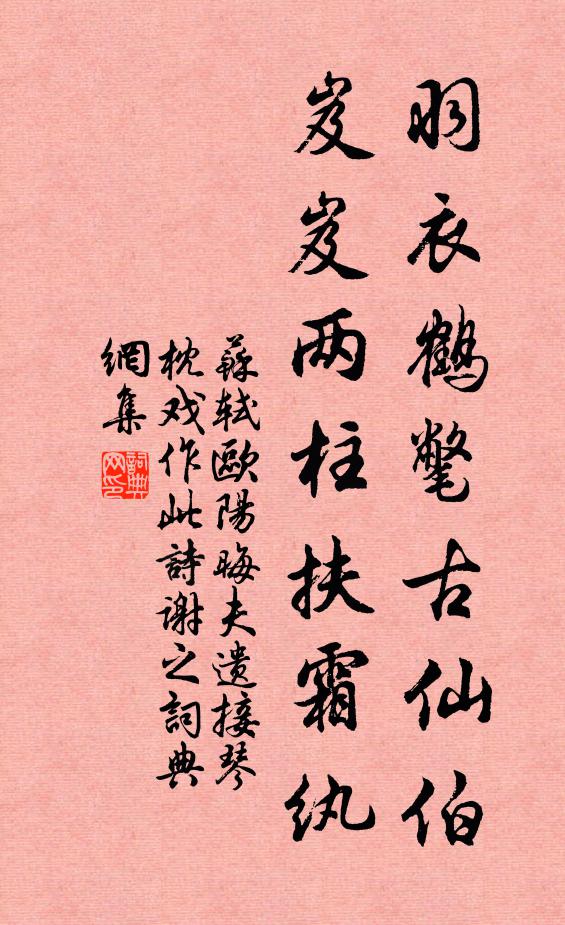 羽衣鶴氅古仙伯
岌岌两柱扶霜纨
蘇轼歐陽晦夫遺接琴
枕戏作此詩谢之詞典
網集
詞典网印